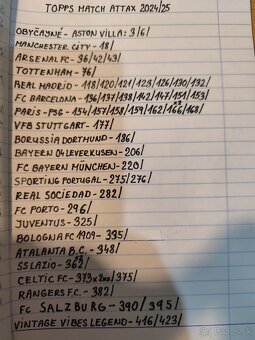 TOPPS MATCH ATTAX 2024/25
OBYČAJNÉ - ASTON VILLA: 3/6/
MANCHESTER CITY - 18/
ARSENAL FC - 36/42/43/
TOTTENHAM - 76/
REAL MADRID - 118/120/121/123/126/130/132/
FC BARCELONA - 136/137/138/142/147/151/153/
PARIS - PSG - 154/157/158/159/162/166/168/
VFB STUTTGART - 177/
BORUSSIA DORTMUND - 186/
BAYERN 04 LEVERKUSEN - 206/
FC BAYERN MÜNCHEN - 220/
SPORTING PORTUGAL - 275/276/
REAL SOCIEDAD - 282/
FC PORTO - 296/
JUVENTUS - 325/
BOLOGNA FC 1909 - 335/
ATALANTA B.C. - 348/
SS LAZIO - 362/
CELTIC FC - 373x2/375/
RANGERS F.C. - 382/
FC SALZBURG - 390/395/
VINTAGE VIBES LEGEND - 416/423/